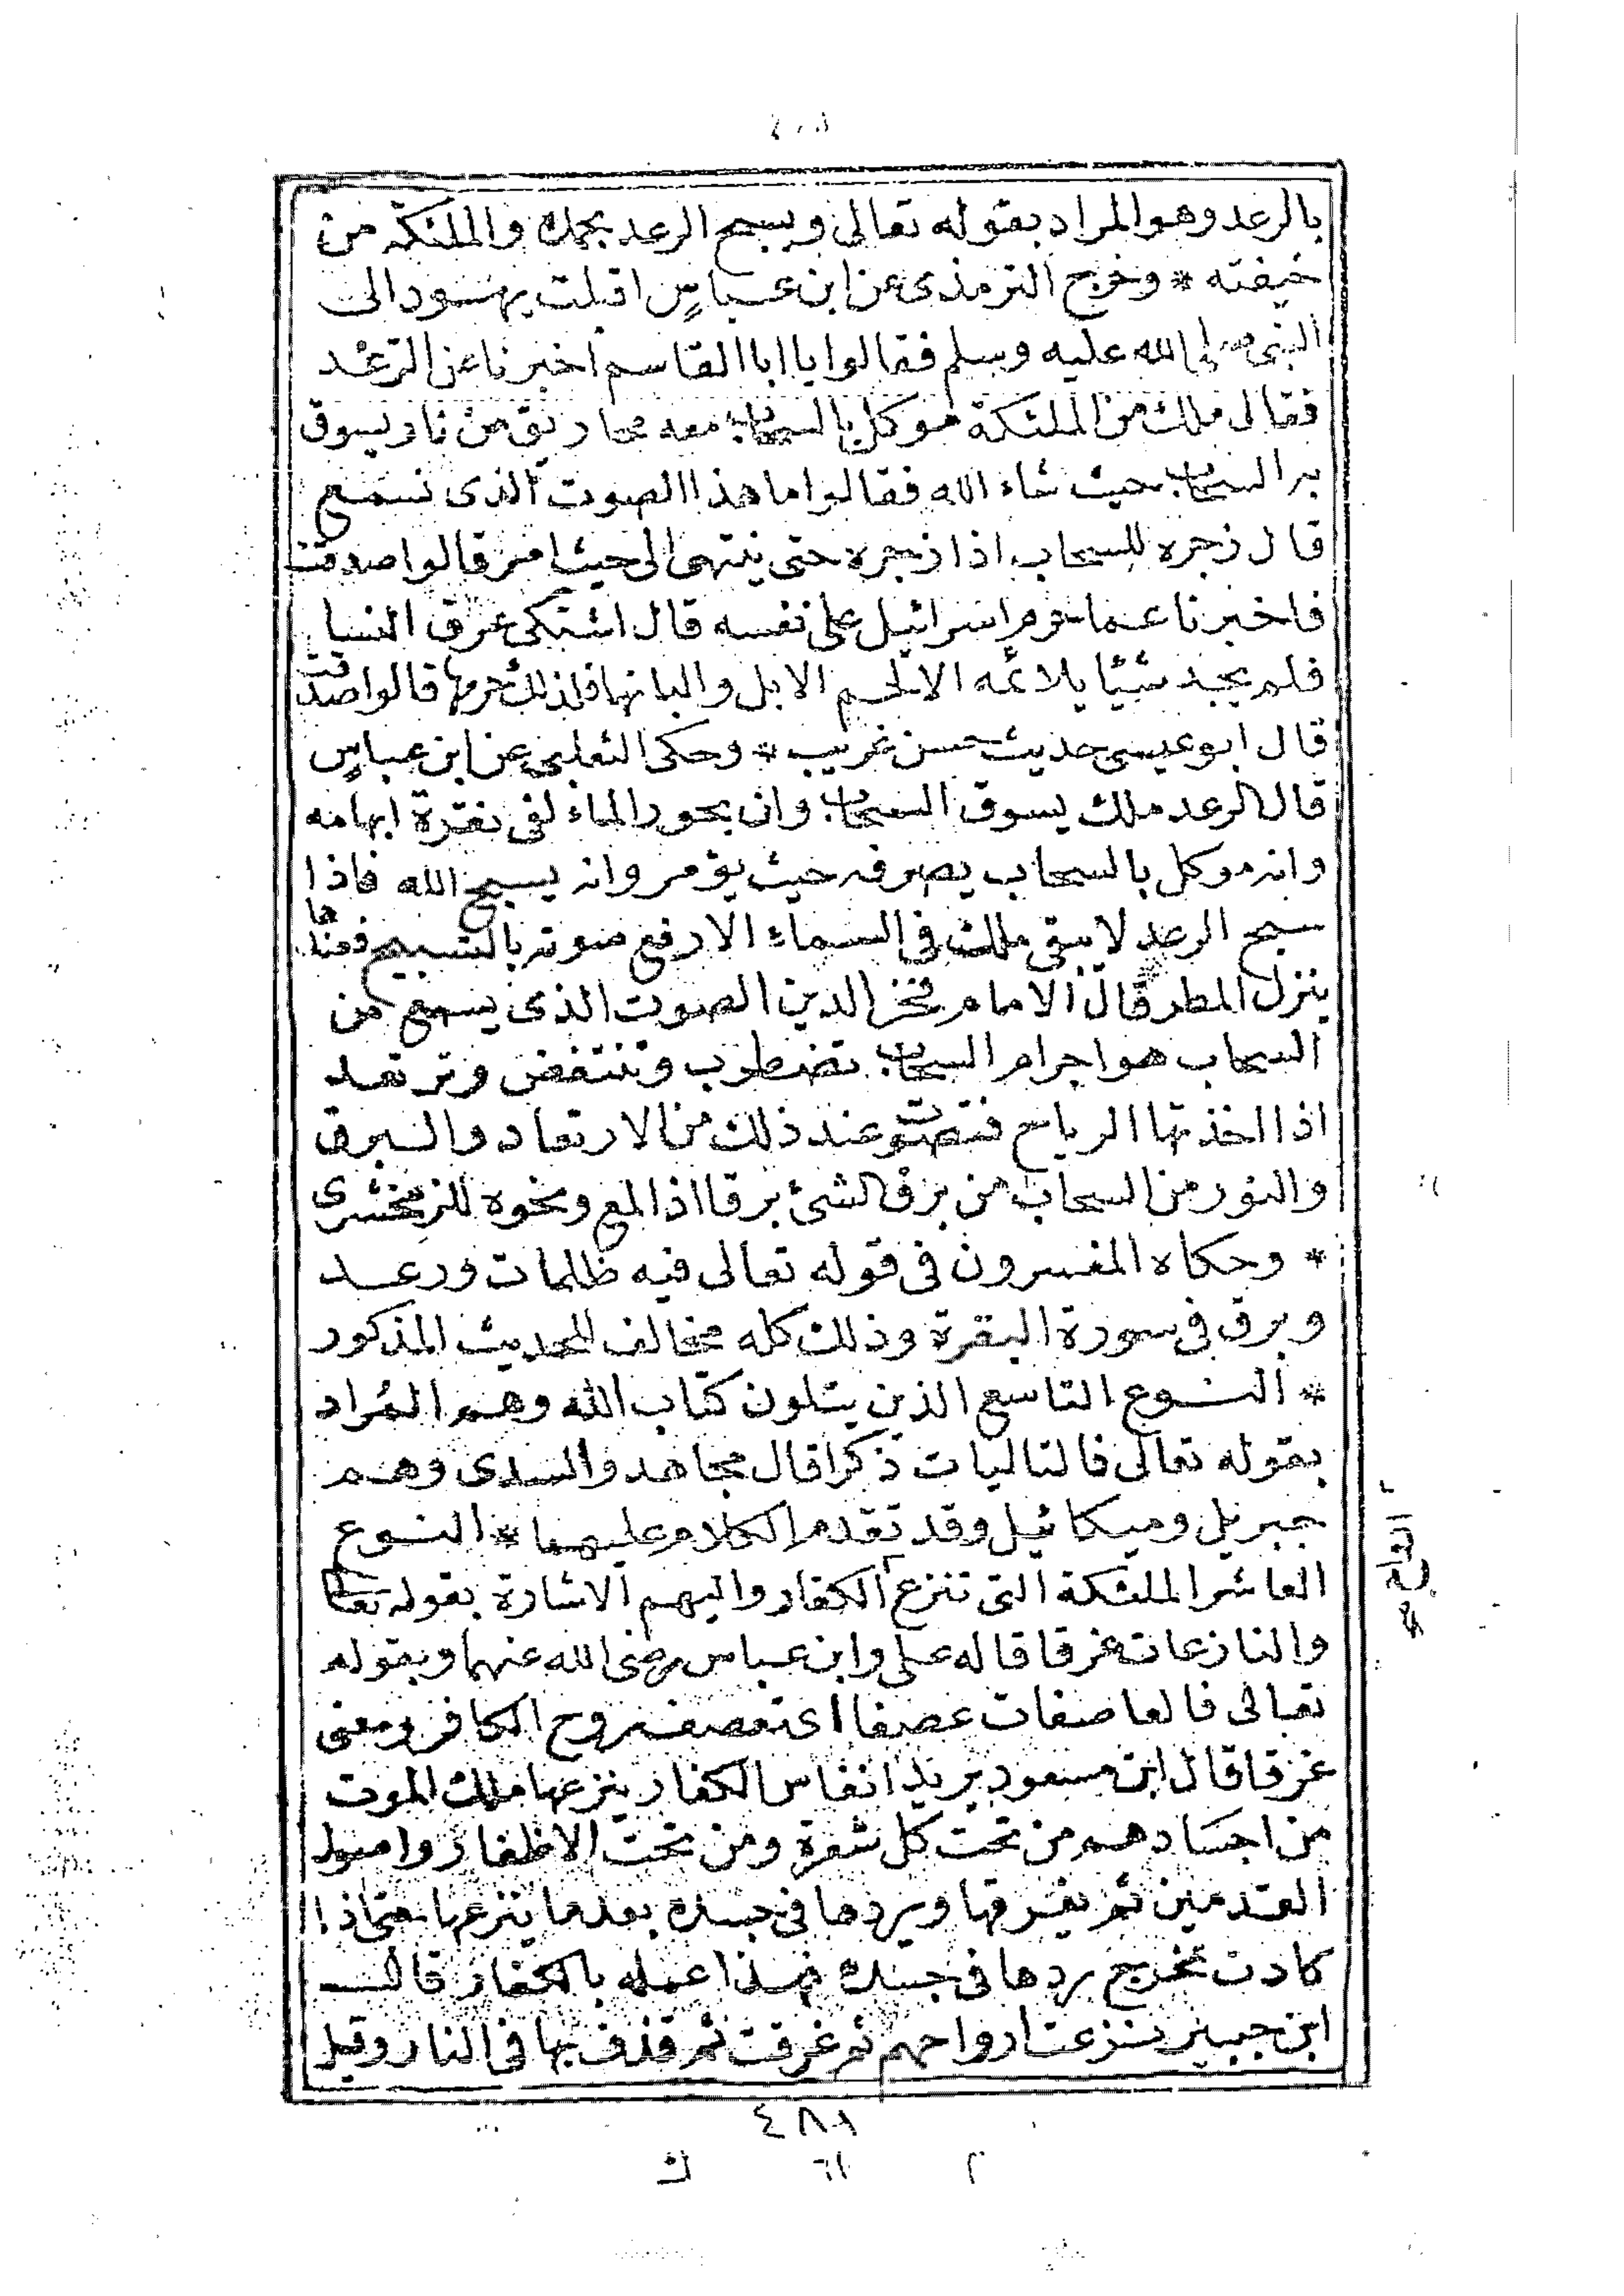 بالرعد وهو المراد بقوله تعالى ويسبح الرعد بحمده والملئكة من
خيفته * وخرج الترمذى عن ابن عباس اقبلت يهود الى
النبى صلى الله عليه وسلم فقالوا يا ابا القاسم اخبرنا عن الرعد
فقال ملك من الملئكة موكل بالسحاب معه مخاريق من نار يسوق
به السحاب حيث شاء الله فقالوا ما هذا الصوت الذى نسمع
قال زجره للسحاب اذا زجره حتى ينتهى الى حيث امر قالوا صدقت
فاخبرنا عما حرم اسرائيل على نفسه قال اشتكى عرق النسا
فلم يجد شيئا يلائمه الا لحم الابل والبانها فلذلك حرمها قالوا صدقت
قال ابو عيسى حديث حسن غريب * وحكى الثعلبى عن ابن عباس
قال الرعد ملك يسوق السحاب وان بحور الماء لفى نقرة ابهامه
وانه موكل بالسحاب يصرفه حيث يؤمر وانه يسبح الله فاذا
سبح الرعد لا يبقى ملك فى السماء الا رفع صوته بالتسبيح فعندها
ينزل المطر قال الامام فخر الدين الصوت الذى يسمع من
السحاب هو اجرام السحاب تضطرب وتنتفض وترتعد
اذا اخذتها الرياح فتصوت عند ذلك من الارتعاد والبرق
والنور من السحاب من برق الشئ برقا اذا لمع ونحوه للزمخشرى
* وحكاه المفسرون فى قوله تعالى فيه ظلمات ورعد
وبرق فى سورة البقرة وذلك كله مخالف للحديث المذكور
* النوع التاسع الذين يتلون كتاب الله وهم المراد
بقوله تعالى فالتاليات ذكرا قال مجاهد والسدى وهم
جبريل وميكائيل وقد تقدم الكلام عليهما * النوع
العاشر الملئكة التى تنزع الكفار واليهم الاشارة بقوله تعالى
والنازعات غرقا قاله على وابن عباس رضى الله عنهما وبقوله
تعالى فالعاصفات عصفا اى تعصف بروح الكافر ومعنى
غرقا قال ابن مسعود يريد انفاس الكفار ينزعها ملك الموت
من اجسادهم من تحت كل شعرة ومن تحت الاظفار واصول
القدمين ثم يغرقها ويردها فى جسده بعدما ينزعها حتى اذا
كادت تخرج ردها فى جسده فهذا عمله بالكفار قال
ابن جبير نزعت ارواحهم ثم غرقت ثم قذف بها فى النار وقيل
٤٨١